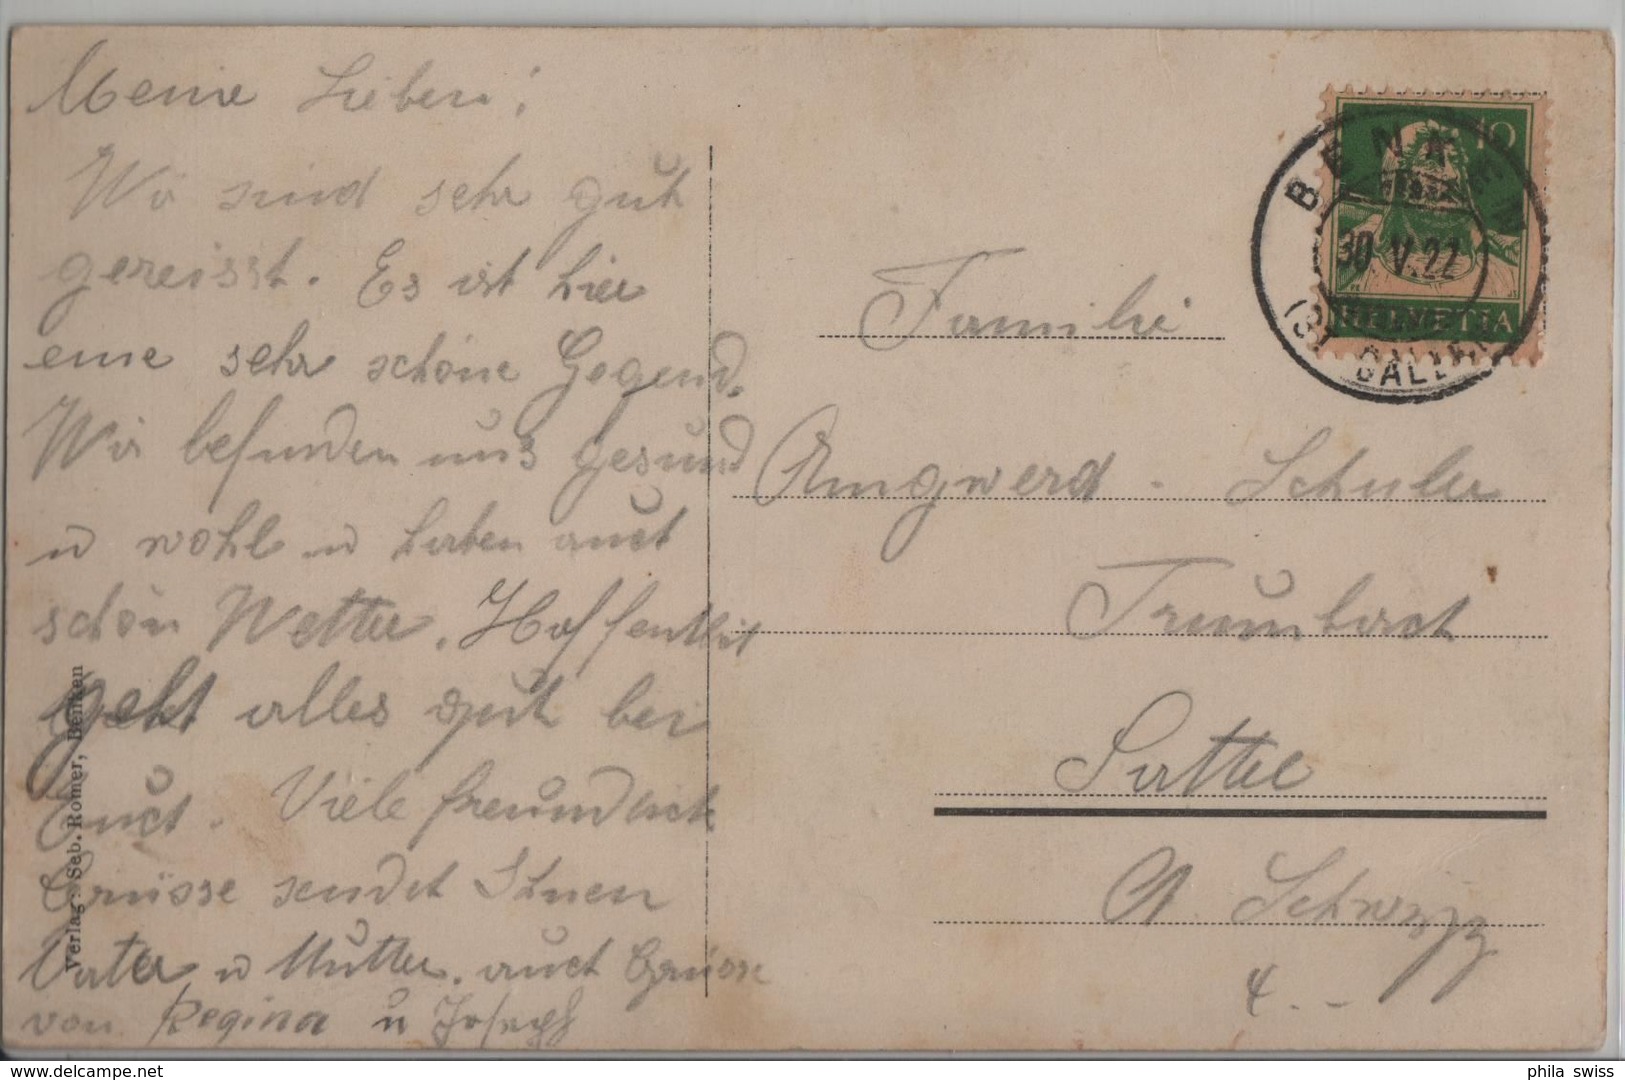 Meine Lieben!
Wir sind sehr gut
gereisst. Es ist hier
eine sehr schöne Gegend.
Wir befinden uns gesund
u wohl u haben auch
schön Wetter. Hoffentlich
geht alles gut bei
Euch. Viele freundlich
Grüsse sendet Ihnen
Vater u Mutter. auch Grüsse
von Regina u Joseph
Verlag: Seb. Romer, Benken
10
HELVETIA
BENKEN
30 V.22
(ST. GALLEN)
Familie
Amgwerd - Schuler
Trümbach
Sattel
Ct. Schwyz
phila swiss